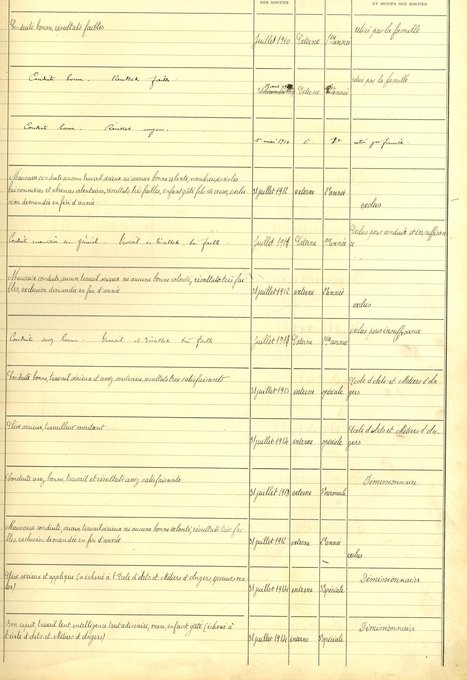 DES SORTIES
ET MOTIFS DES SORTIES
Conduite bonne, résultats faibles
Juillet 1910 Externe 1ère année retiré par la famille
Conduite bonne. Résultats faibles
Externe année retiré par la famille
Conduite bonne. Résultats moyens.
mai 1910 famille
Mauvaise conduite aucun travail sérieux ni aucune bonne volonté, nombreuses
et absences volontaires, résultats très faibles, enfant gâté fils de
demandée en fin d'année
31 juillet 1912 externe 2e année exclus
Conduite en général. travail et résultats très faibles.
Juillet Externe année Exclus pour conduite et insuffisance
Mauvaise conduite, aucun travail sérieux ni aucune bonne volonté, résultats très fai-
bles, exclusion demandée en fin d'année
31 juillet 1912 externe année exclus
Conduite assez bonne. travail et résultats très faibles
Juillet Externe année exclus pour insuffisance
Conduite bonne, travail sérieux et assez soutenu, résultats très satisfaisants
31 juillet 1913 externe spéciale Ecole d'Arts et Métiers d'An-
gers
Elève sérieux, travailleur
31 juillet 1914 interne spéciale Ecole d'Arts et Métiers d'An-
gers
Conduite assez bonne, travail et résultats assez satisfaisants
31 juillet externe normale Démissionnaire
Mauvaise conduite, aucun travail sérieux ni aucune bonne volonté, résultats très fai-
bles, exclusion demandée en fin d'année
31 juillet 1912 externe année exclus
Elève sérieux et appliqué (a échoué à l'Ecole d'Arts et Métiers d'Angers,
31 juillet 1914 externe spéciale Démissionnaire
Bon esprit, travail lent intelligence enfant gâté (échoué à
l'Ecole d'Arts et Métiers d'Angers)
31 juillet 1914 interne spéciale Démissionnaire